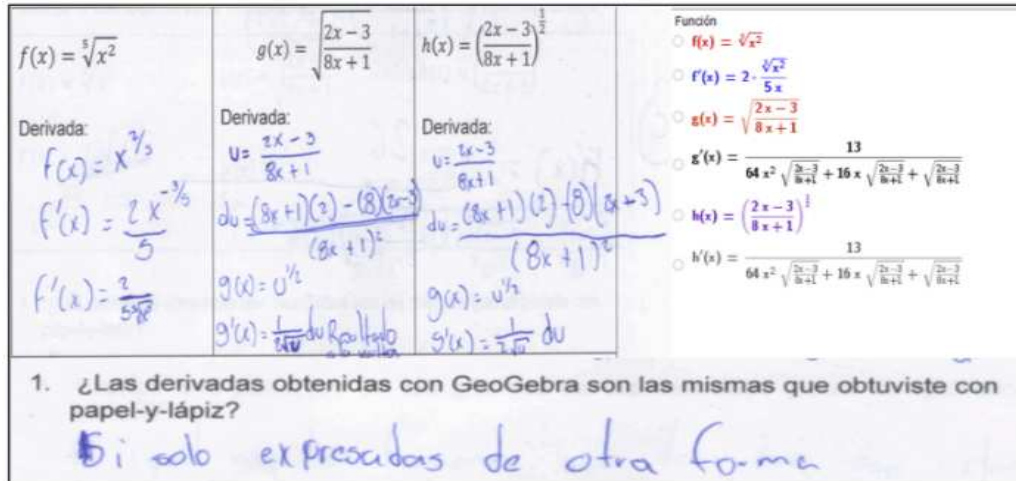 f(x) = ⁵√x²
Derivada:
f(x) = x^2/5
f'(x) = 2x^-3/5 / 5
f'(x) = 2 / 5⁵√x³
g(x) = √((2x − 3)/(8x + 1))
Derivada:
u = (2x − 3)/(8x + 1)
du = ((8x + 1)(2) − (8)(2x−3))/(8x + 1)²
g(x) = u^1/2
g'(x) = 1/(2√u) du Resultado
a la vuelta
h(x) = ((2x − 3)/(8x + 1))^1/2
Derivada:
u = (2x − 3)/(8x + 1)
du = ((8x + 1)(2) − (8)(2x − 3))/(8x + 1)²
g(x) = u^1/2
g'(x) = 1/(2√u) du
Función
f(x) = ⁵√x²
f'(x) = 2 · ⁵√x² / 5 x
g(x) = √((2 x − 3)/(8 x + 1))
g'(x) = 13 / (64 x² √((2x−3)/(8x+1)) + 16 x √((2x−3)/(8x+1)) + √((2x−3)/(8x+1)))
h(x) = ((2 x − 3)/(8 x + 1))^1/2
h'(x) = 13 / (64 x² √((2x−3)/(8x+1)) + 16 x √((2x−3)/(8x+1)) + √((2x−3)/(8x+1)))
1. ¿Las derivadas obtenidas con GeoGebra son las mismas que obtuviste con
papel-y-lápiz?
Si solo expresadas de otra forma